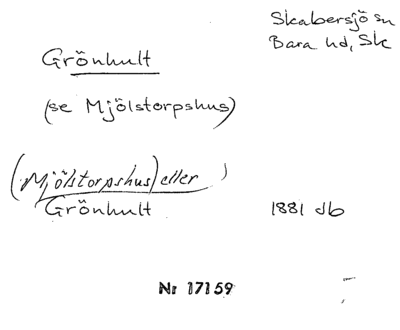 Skabersjö sn
Bara hd, Sk
Grönhult
(se Mjölstorpshus)
(Mjölstorpshus) eller
Grönhult 1881 jb
Nr 17159